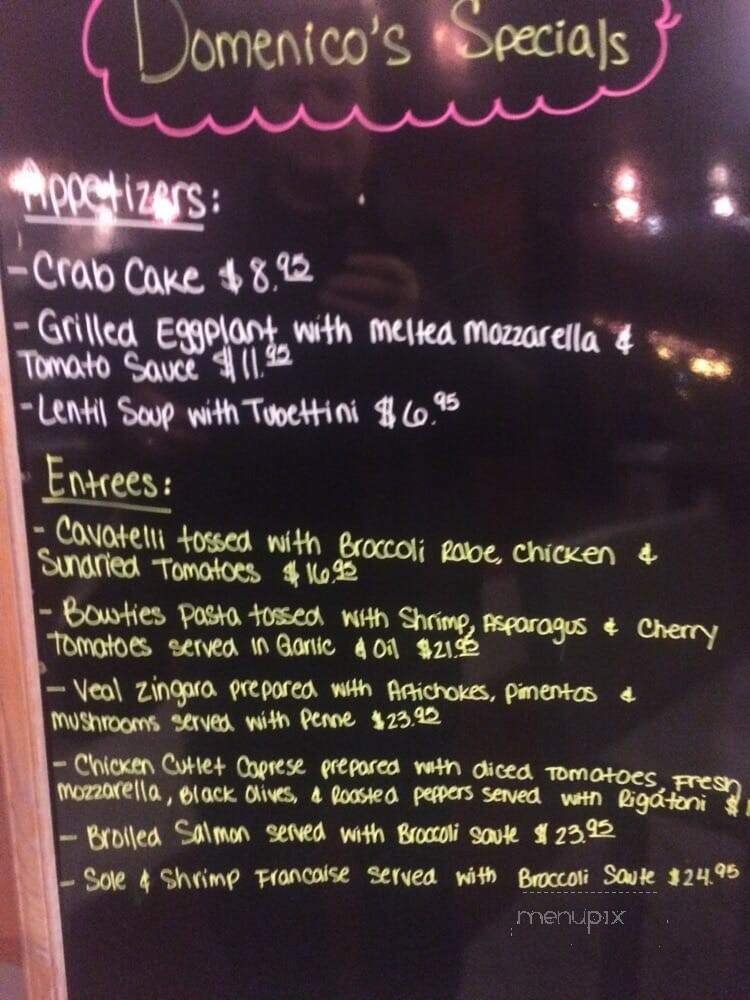 Domenico's Specials
Appetizers:
- Crab Cake $8.95
- Grilled Eggplant with melted mozzarella &
Tomato Sauce $11.95
- Lentil Soup with Tubettini $6.95
Entrees:
- Cavatelli tossed with Broccoli Rabe, chicken &
Sundried Tomatoes $16.95
- Bowties pasta tossed with Shrimp, Asparagus & Cherry
Tomatoes served in Garlic & Oil $21.95
- Veal Zingara prepared with Artichokes, pimentos &
mushrooms served with Penne $23.95
- Chicken Cutlet Caprese prepared with diced Tomatoes, Fresh
mozzarella, Black Olives, & Roasted peppers served with Rigatoni $
- Broiled Salmon served with Broccoli saute $23.95
- Sole & Shrimp Francaise served with Broccoli Saute $24.95
menupix